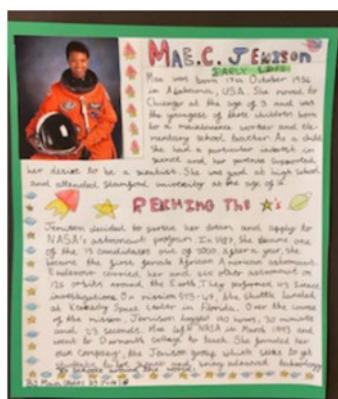 MAE.C. JEMISON
EARLY LIFE
Mae was born 17th October 1956
in Alabama, USA. She moved to
Chicago at the age of 3 and was
the youngest of three children born
to a maintenance worker and ele-
mentary school teacher. As a child
she had a particular interest in
science and her parents supported
her desire to be a scientist. She was good at high school
and attended Stanford university at the age of
REACHING THE 's
Jemison decided to pursue her dream and apply to
NASA's astronaut program. In 1987, she became one
of the 15 candidates out of 2000. After a year she
became the first female African American astronaut.
Endeavour carried her and six other astronaut on
126 orbits around the Earth. They performed 43 science
investigations. On mission STS-47, the shuttle landed
at Kennedy Space Center in Florida. Over the course
of the mission, Jemison logged 190 hours, 30 minutes
and 23 seconds. Mae left NASA in March 1993 and
went to Dartmouth college to teach. She founded her
own company, the Jemison group which seeks to get
students to love space and bring advanced technology
to schools around the world.